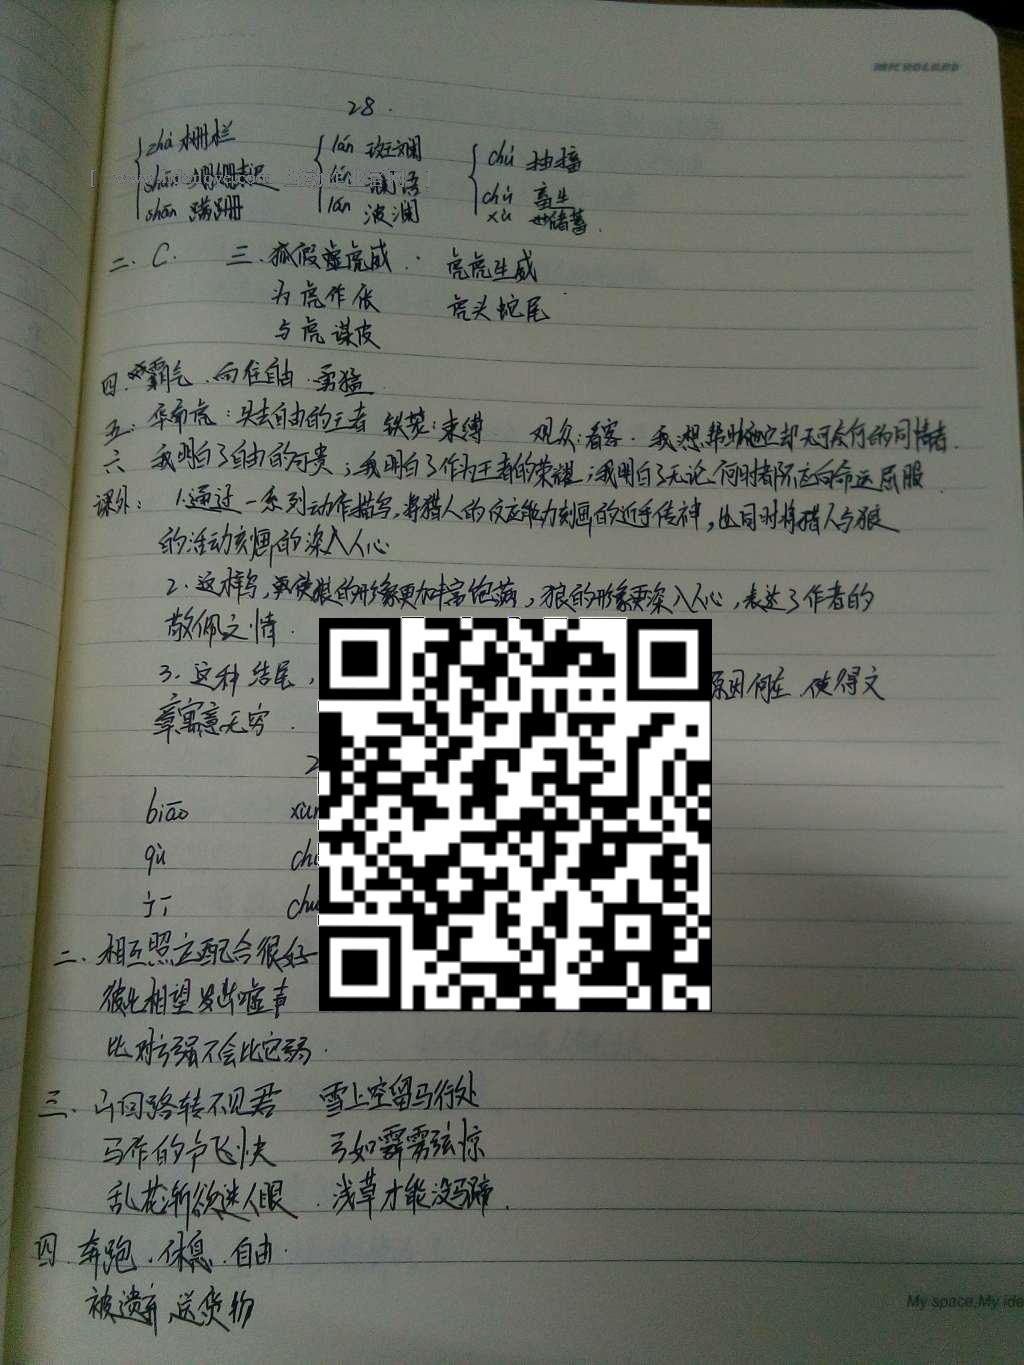 MICROLAND
28.
zhà 栅栏 lán 斑斓 chù 抽搐
姗姗来迟 谰语 chù 畜生
shān 蹒跚 lán 波澜 xù 储蓄.
二. C. 三. 狐假虎威 . 虎虎生威
为虎作伥 虎头蛇尾
与虎谋皮
四. 霸气 . 向往自由 . 勇猛
五. 华南虎：失去自由的王者 铁笼：束缚 观众：看客 . 我：想帮助它却无可奈何的同情者.
六 我明白了自由的可贵；我明白了作为王者的荣耀；我明白了无论何时都不应向命运屈服
课外： 1.通过一系列动作描写，将猎人的反应能力刻画的近乎传神，也同时将猎人与狼
的活动刻画的深入人心
2.这样写，更使狼的形象更加丰富饱满，狼的形象更深入人心，表达了作者的
敬佩之情 .
3. 这种结尾， 原因何在 . 使得文
章寓意无穷 .
biāo
qù
二. 相互照应配合很好
彼此相望发出嘘声
比对方强不会比它弱 .
三. 山回路转不见君 雪上空留马行处
马作的卢飞快 弓如霹雳弦惊
乱花渐欲迷人眼 . 浅草才能没马蹄 .
四. 奔跑 . 休息 . 自由 .
被遗弃 . 送货物
My space,My ide